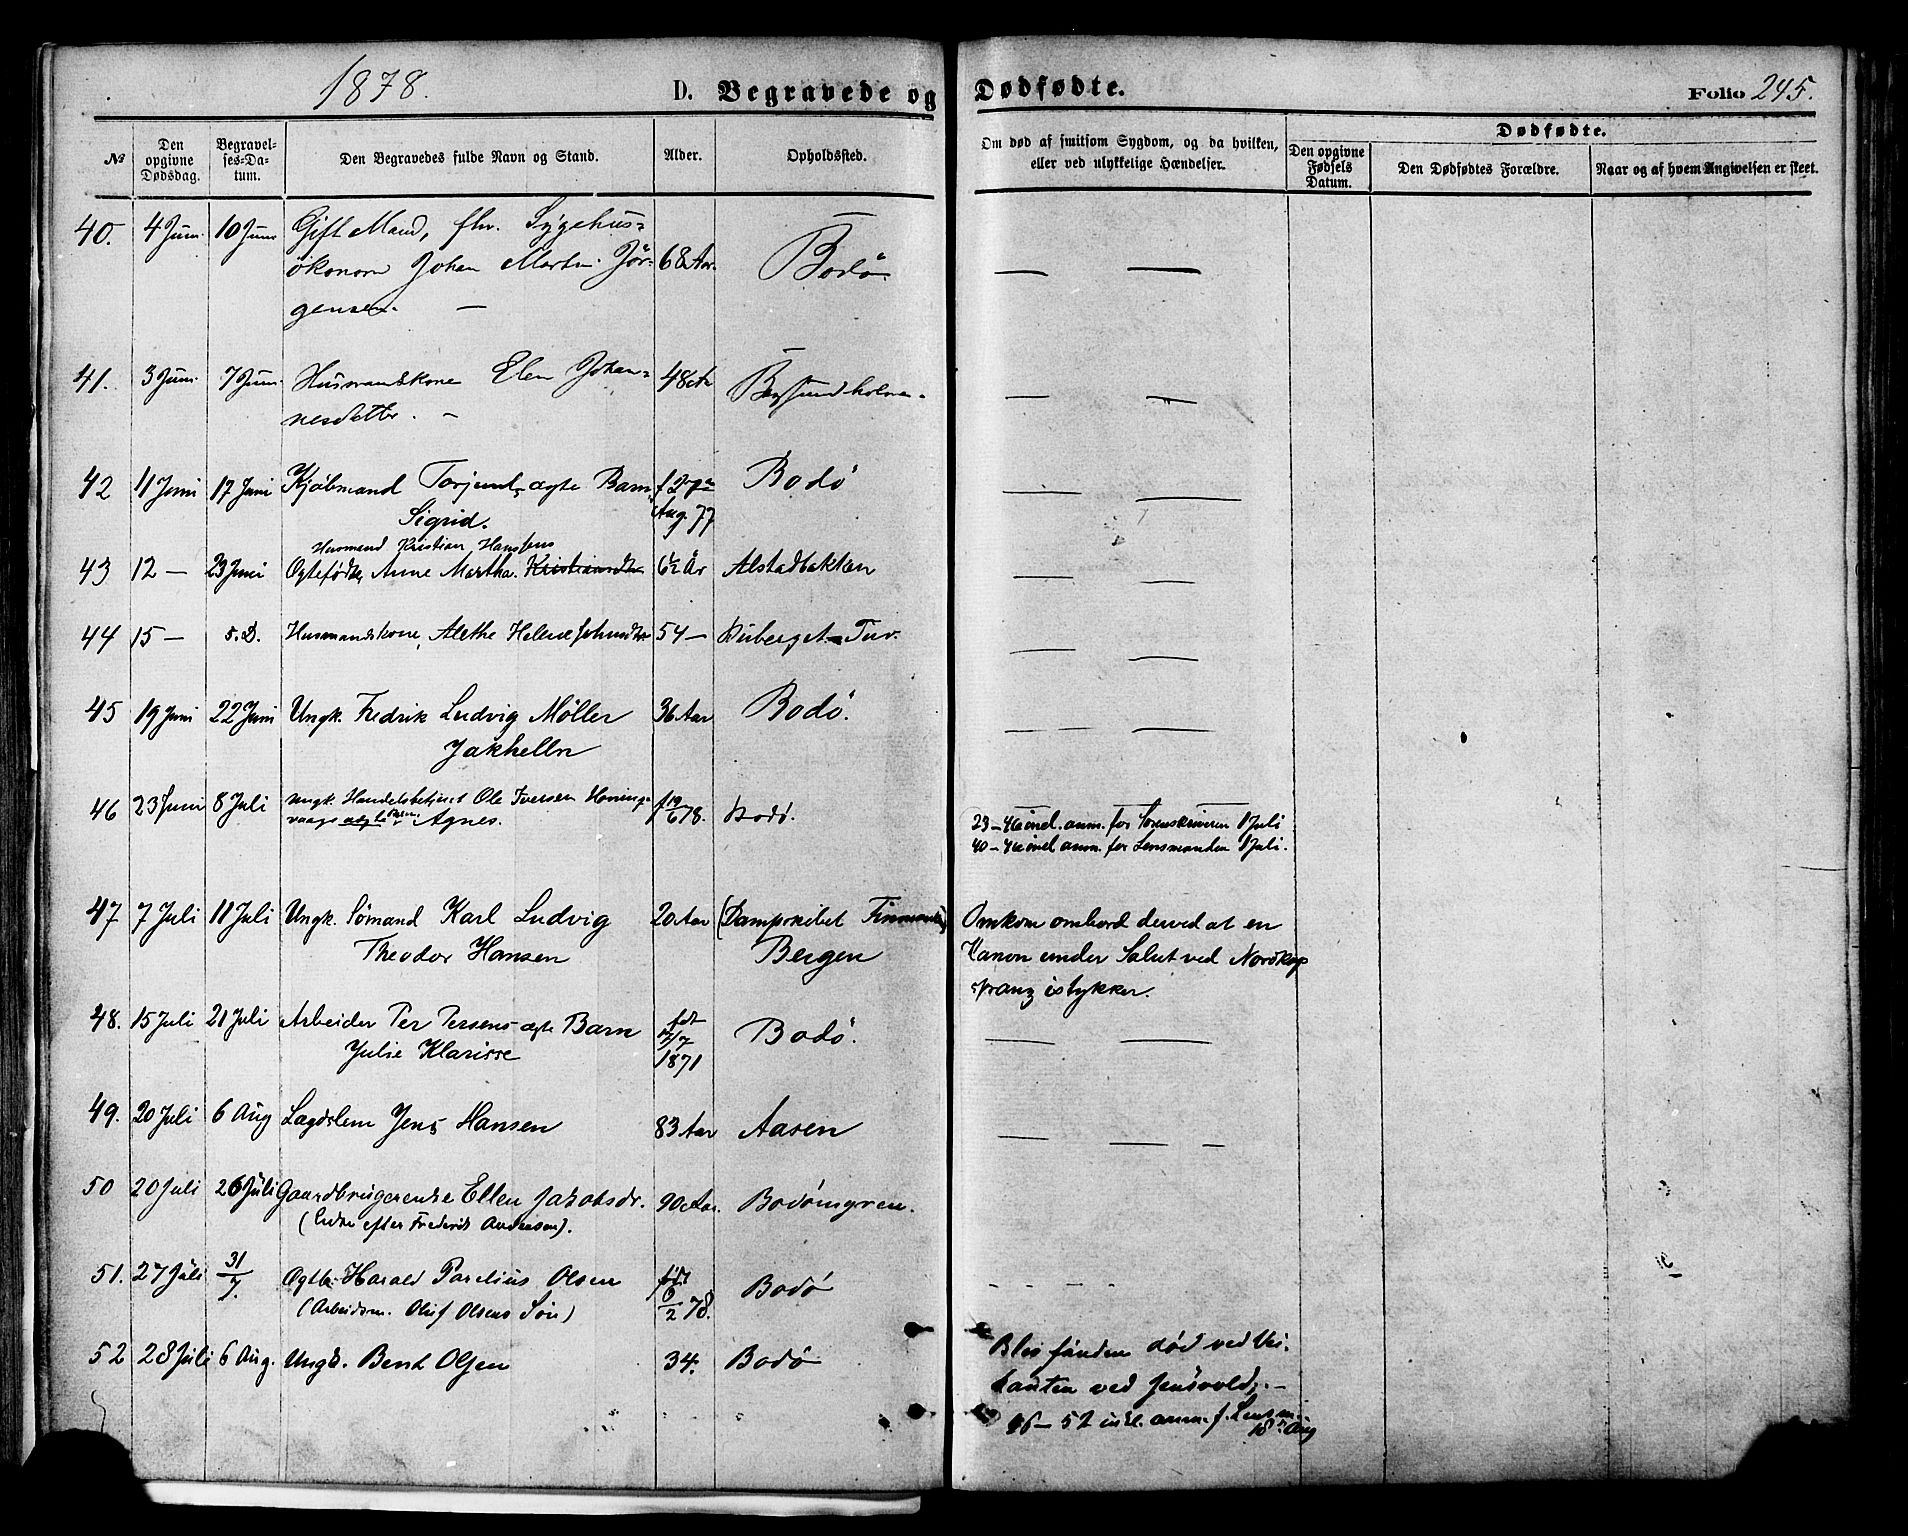 1878.
D. Begravede og Dødfødte.
Folio 245.
№
Den opgivne Dødsdag.
Begravel-ses-Da-tum.
Den Begravedes fulde Navn og Stand.
Alder.
Opholdssted.
Om død af smitsom Sygdom, og da hvilken,
eller ved ulykkelige Hændelser.
Dødfødte.
Den opgivne Fødsels Datum.
Den Dødfødtes Forældre.
Naar og af hvem Angivelsen er skeet.
40. 4 Juni 10 Juni Gift Mand, fhv. Sygehus=
økonom Johan Martin Jör- 68 Aar. Bodö.
gensen. —
41. 3 Juni 7 Juni Husmandskone Elen Johan= 48 Aar
nesdatter. —
42 11 Juni 17 Juni Kjøbmand ægte Barn f 2den Bodö
Sigrid. Aug. 77
Husmand Kristian Hansens
43 12 — 23 Juni Ægtefødte Anne Martha. Kristiansdtr 6½ År Alstadbakken
44 15 — s. D. Husmandskone, Alethe Helene 54 —
45 19 Juni 22 Juni Ungk. Fredrik Ludvig Möller 36 Aar Bodö.
Jakhelln
46 23 Juni 8 Juli Ungk. Handelsbetjent Ole Iversen Honing-
vaags ægte Barn Agnes. f 19/6 78. Bodø.
23 – 46 incl. anm. for Sorenskriveren 1 Juli
40 – 46 incl anm. for Lensmanden 1 Juli.
47 7 Juli 11 Juli Ungk. Sømand Karl Ludvig 20 Aar (Dampskibet Finmarken) Omkom ombord derved at en
Theodor Hansen Bergen Kanon under Salut ved Nordkap
sprang istykker.
48. 15 Juli 21 Juli Arbeider Per Persens ægte Barn fdt Bodö.
Julie Klarisse 17/7
1871
49. 20 Juli 6 Aug Lagdslem Jens Hansen 83 Aar Aasen
50 20 Juli 26 Juli Gaardbrugerenke Ellen Jakobsdr. 90 Aar. Bodömyren.
(Enke efter Frederik Andersen).
51. 27 Juli 31/7. Ægtb. Harald Parelius Olsen født Bodö
(Arbeidsm. Oluf Olsens Søn) 9/2 78.
52 28 Juli 6 Aug. Ungk. Bent Olsen 34. Bodø Blev funden död ved
ved Jensvold. —
46 – 52 inkl. anm. f. Lensm.
18de Aug